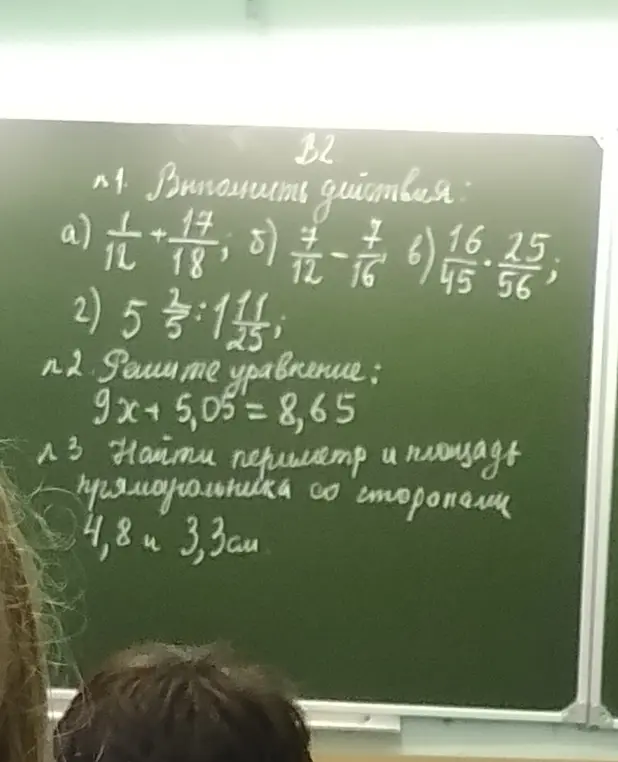 В2
№1. Выполнить действия:
а) 1/12 + 17/18; б) 7/12 - 7/16 в) 16/45 · 25/56;
г) 5 2/5 : 1 11/25;
№2. Решите уравнение:
9х+ 5,05 = 8,65
№3 Найти периметр и площадь
прямоугольника со сторонами
4,8 и 3,3см